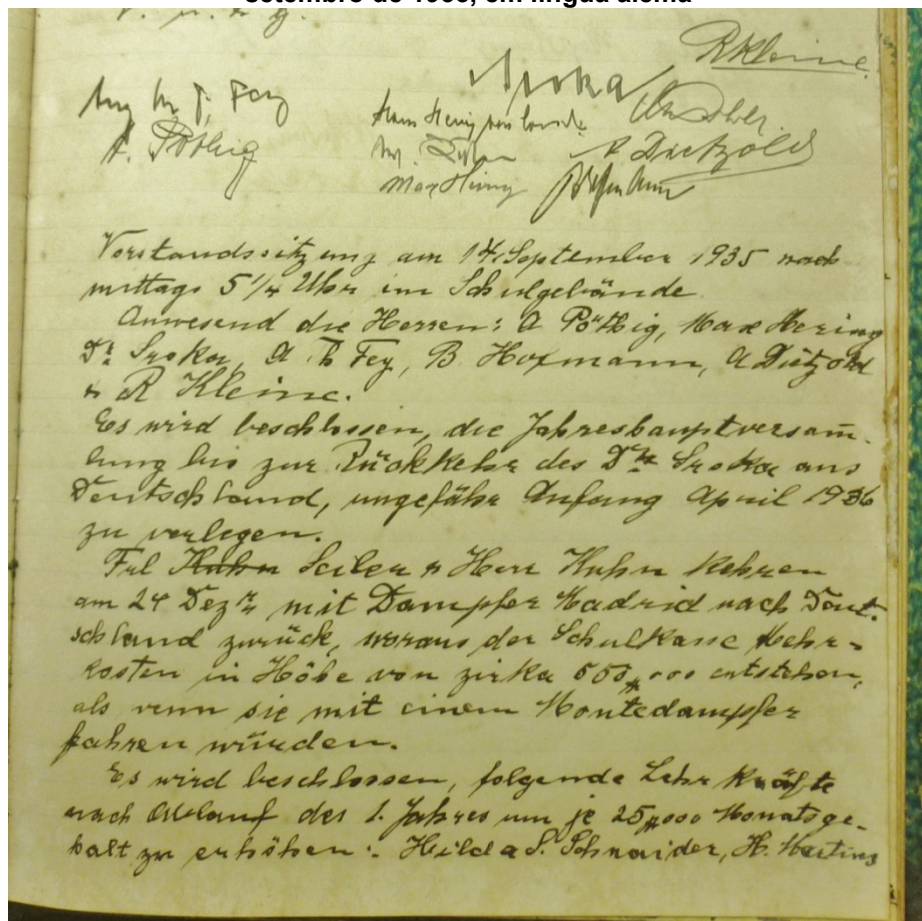 setembro de 1935, em língua alemã
v. u. g.
R Kleine.
Aug Wm T. Fey
Sroka
Hans Henig von
A. Pöthig
A Dietzold
Max Hering
B Hofmann
Vorstandssitzung am 14. September 1935 nach
mittags 5 1/4 Uhr im Schulgebäude
Anwesend die Herren: A Pöthig, Max Hering
Dr. Sroka, A W Fey, B. Hofmann, A Dietzold
u R Kleine.
Es wird beschlossen, die Jahreshauptversam̄-
lung bis zur Rückkehr des Drs Sroka aus
Deutschland, ungefähr Anfang April 1936
zu verlegen.
Frl Kuhn Seiler u Herr Kuhn kehren
am 24 Dezbr mit Dampfer Madrid nach Deut-
schland zurück, woraus der Schulkasse Mehr-
kosten in Höhe von zirka 550$000 entstehen,
als wenn sie mit einem Montedampfer
fahren würden.
Es wird beschlossen, folgende Lehrkräfte
nach Ablauf des 1. Jahres um je 25$000 Monatsge-
halt zu erhöhen: Hilda S. Schnaider, H. Martins